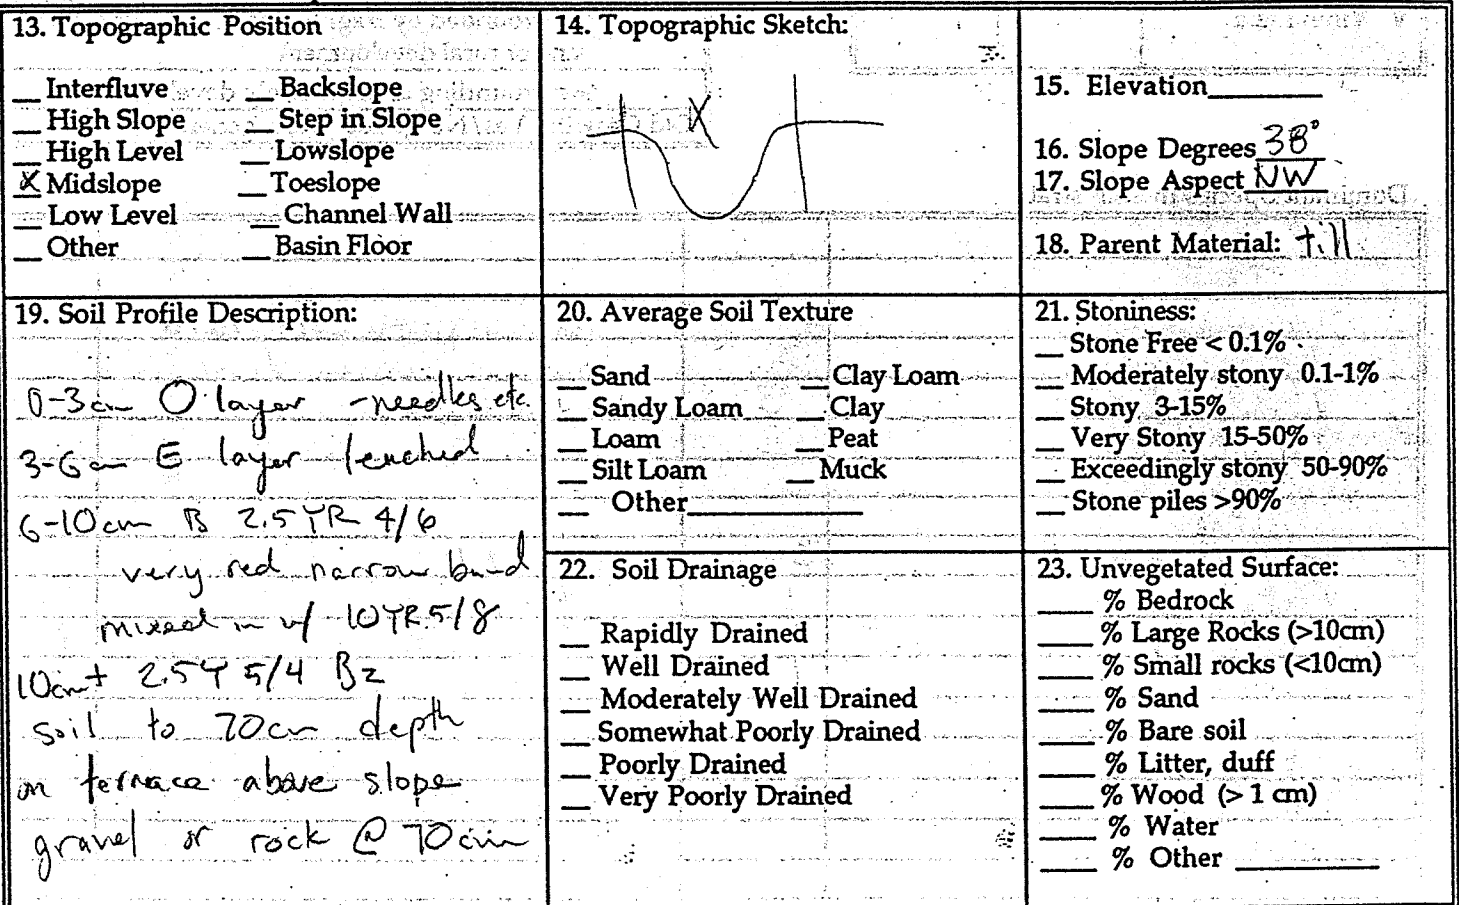 13. Topographic Position
__ Interfluve __ Backslope
__ High Slope __ Step in Slope
__ High Level __ Lowslope
X Midslope __ Toeslope
__ Low Level __ Channel Wall
__ Other __ Basin Floor
14. Topographic Sketch:
X
15. Elevation________
16. Slope Degrees 38°
17. Slope Aspect NW
18. Parent Material: till
19. Soil Profile Description:
0-3cm O layer - needles etc.
3-6cm E layer leached
6-10cm B 2.5YR 4/6
very red narrow band
mixed in w/ 10YR 5/8
10cm+ 2.5Y 5/4 B2
soil to 70cm depth
on terrace above slope
gravel or rock @ 70cm
20. Average Soil Texture
__ Sand __ Clay Loam
__ Sandy Loam __ Clay
__ Loam __ Peat
__ Silt Loam __ Muck
__ Other____________
21. Stoniness:
__ Stone Free < 0.1%
__ Moderately stony 0.1-1%
__ Stony 3-15%
__ Very Stony 15-50%
__ Exceedingly stony 50-90%
__ Stone piles >90%
22. Soil Drainage
__ Rapidly Drained
__ Well Drained
__ Moderately Well Drained
__ Somewhat Poorly Drained
__ Poorly Drained
__ Very Poorly Drained
23. Unvegetated Surface:
____ % Bedrock
____ % Large Rocks (>10cm)
____ % Small rocks (<10cm)
____ % Sand
____ % Bare soil
____ % Litter, duff
____ % Wood (> 1 cm)
____ % Water
____ % Other __________